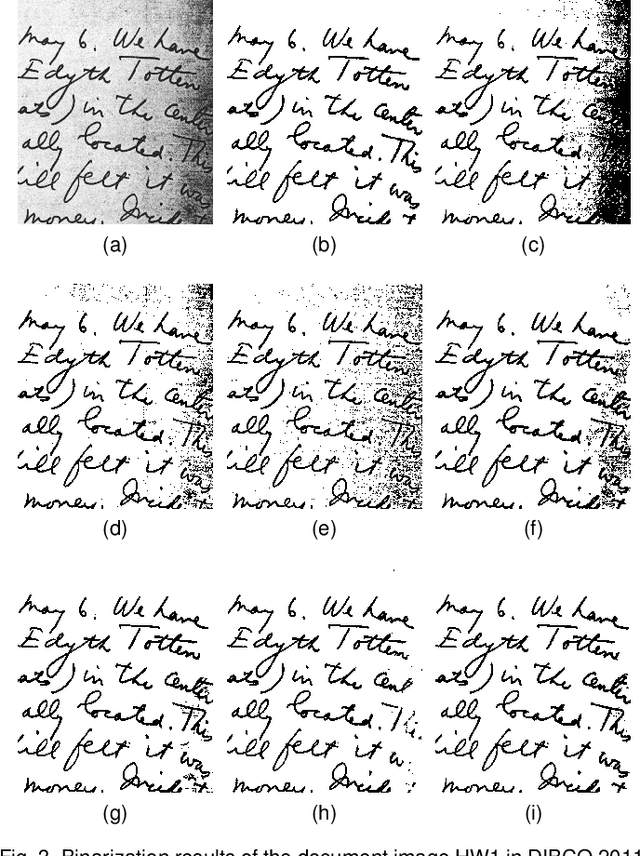 May 6. We have
Edyth Totten
ats) in the center
ally located. This
ill felt it was
money.
(a)
May 6. We have
Edyth Totten
ats) in the center
ally located. This
ill felt it was
money.
(b)
May 6. We have
Edyth Totten
ats) in the
ally located.
ill felt it
money.
(c)
May 6. We have
Edyth Totten
ats) in the center
ally located. This
ill felt it was
money.
(d)
May 6. We have
Edyth Totten
ats) in the center
ally located. This
ill felt it was
money.
(e)
May 6. We have
Edyth Totten
ats) in the center
ally located. This
ill felt it was
money.
(f)
May 6. We have
Edyth Totten
ats) in the center
ally located. This
ill felt it was
money.
(g)
May 6. We have
Edyth Totten
ats) in the cent
ally located.
ill felt it w
money.
(h)
May 6. We have
Edyth Totten
ats) in the center
ally located. This
ill felt it was
money.
(i)
Fig. 3. Binarization results of the document image HW1 in DIBCO 2011